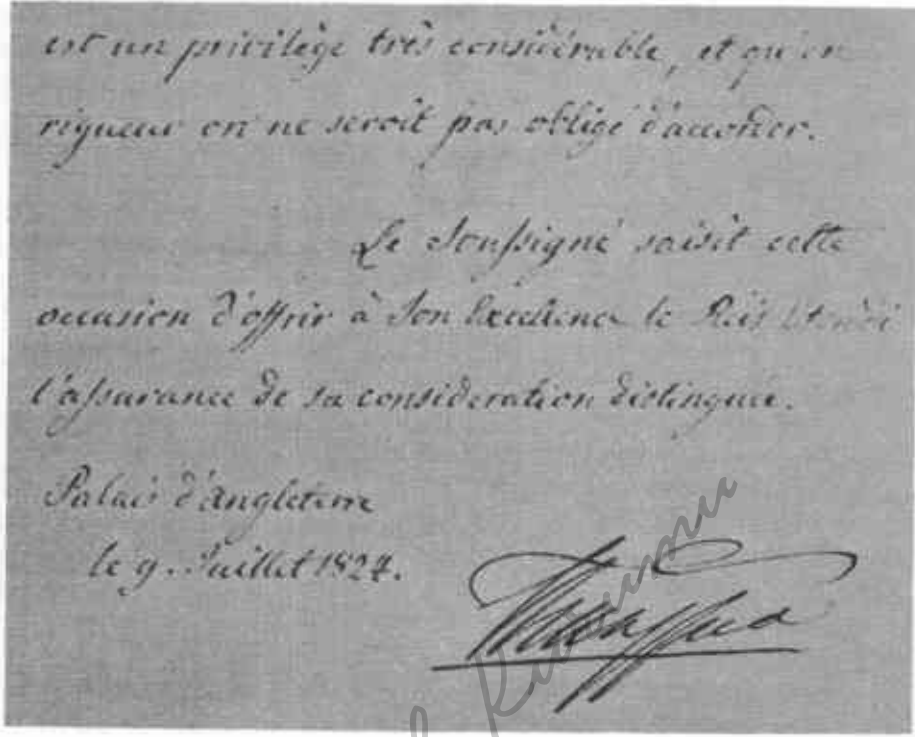 est un privilège très considérable, et qu'en
rigueur on ne seroit pas obligé d'accorder.
Le Soussigné saisit cette
occasion d'offrir à Son Excellence le Reis Efendi
l'assurance de sa considération distinguée.
Palais d'Angleterre
le 9. Juillet 1824.